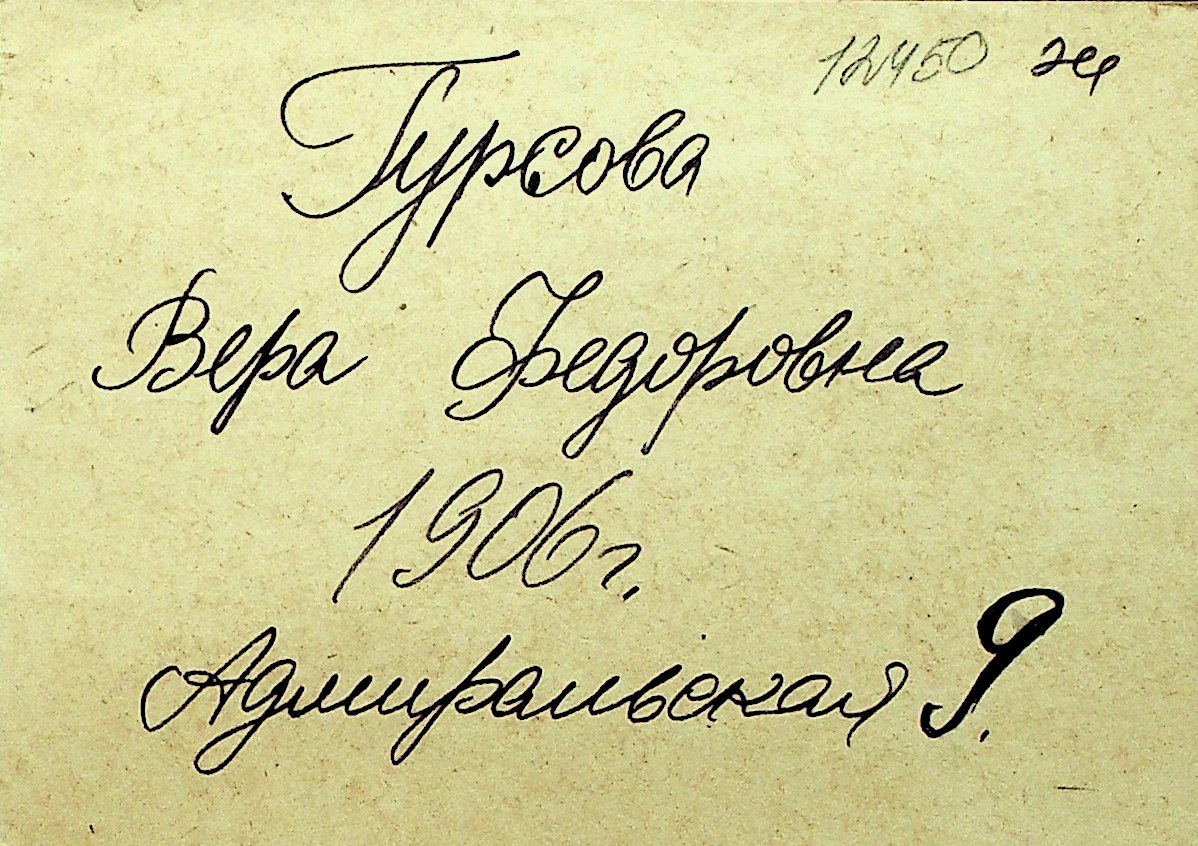 12450 эк
Гурсова
Вера Федоровна
1906г.
Адмиральская 9.